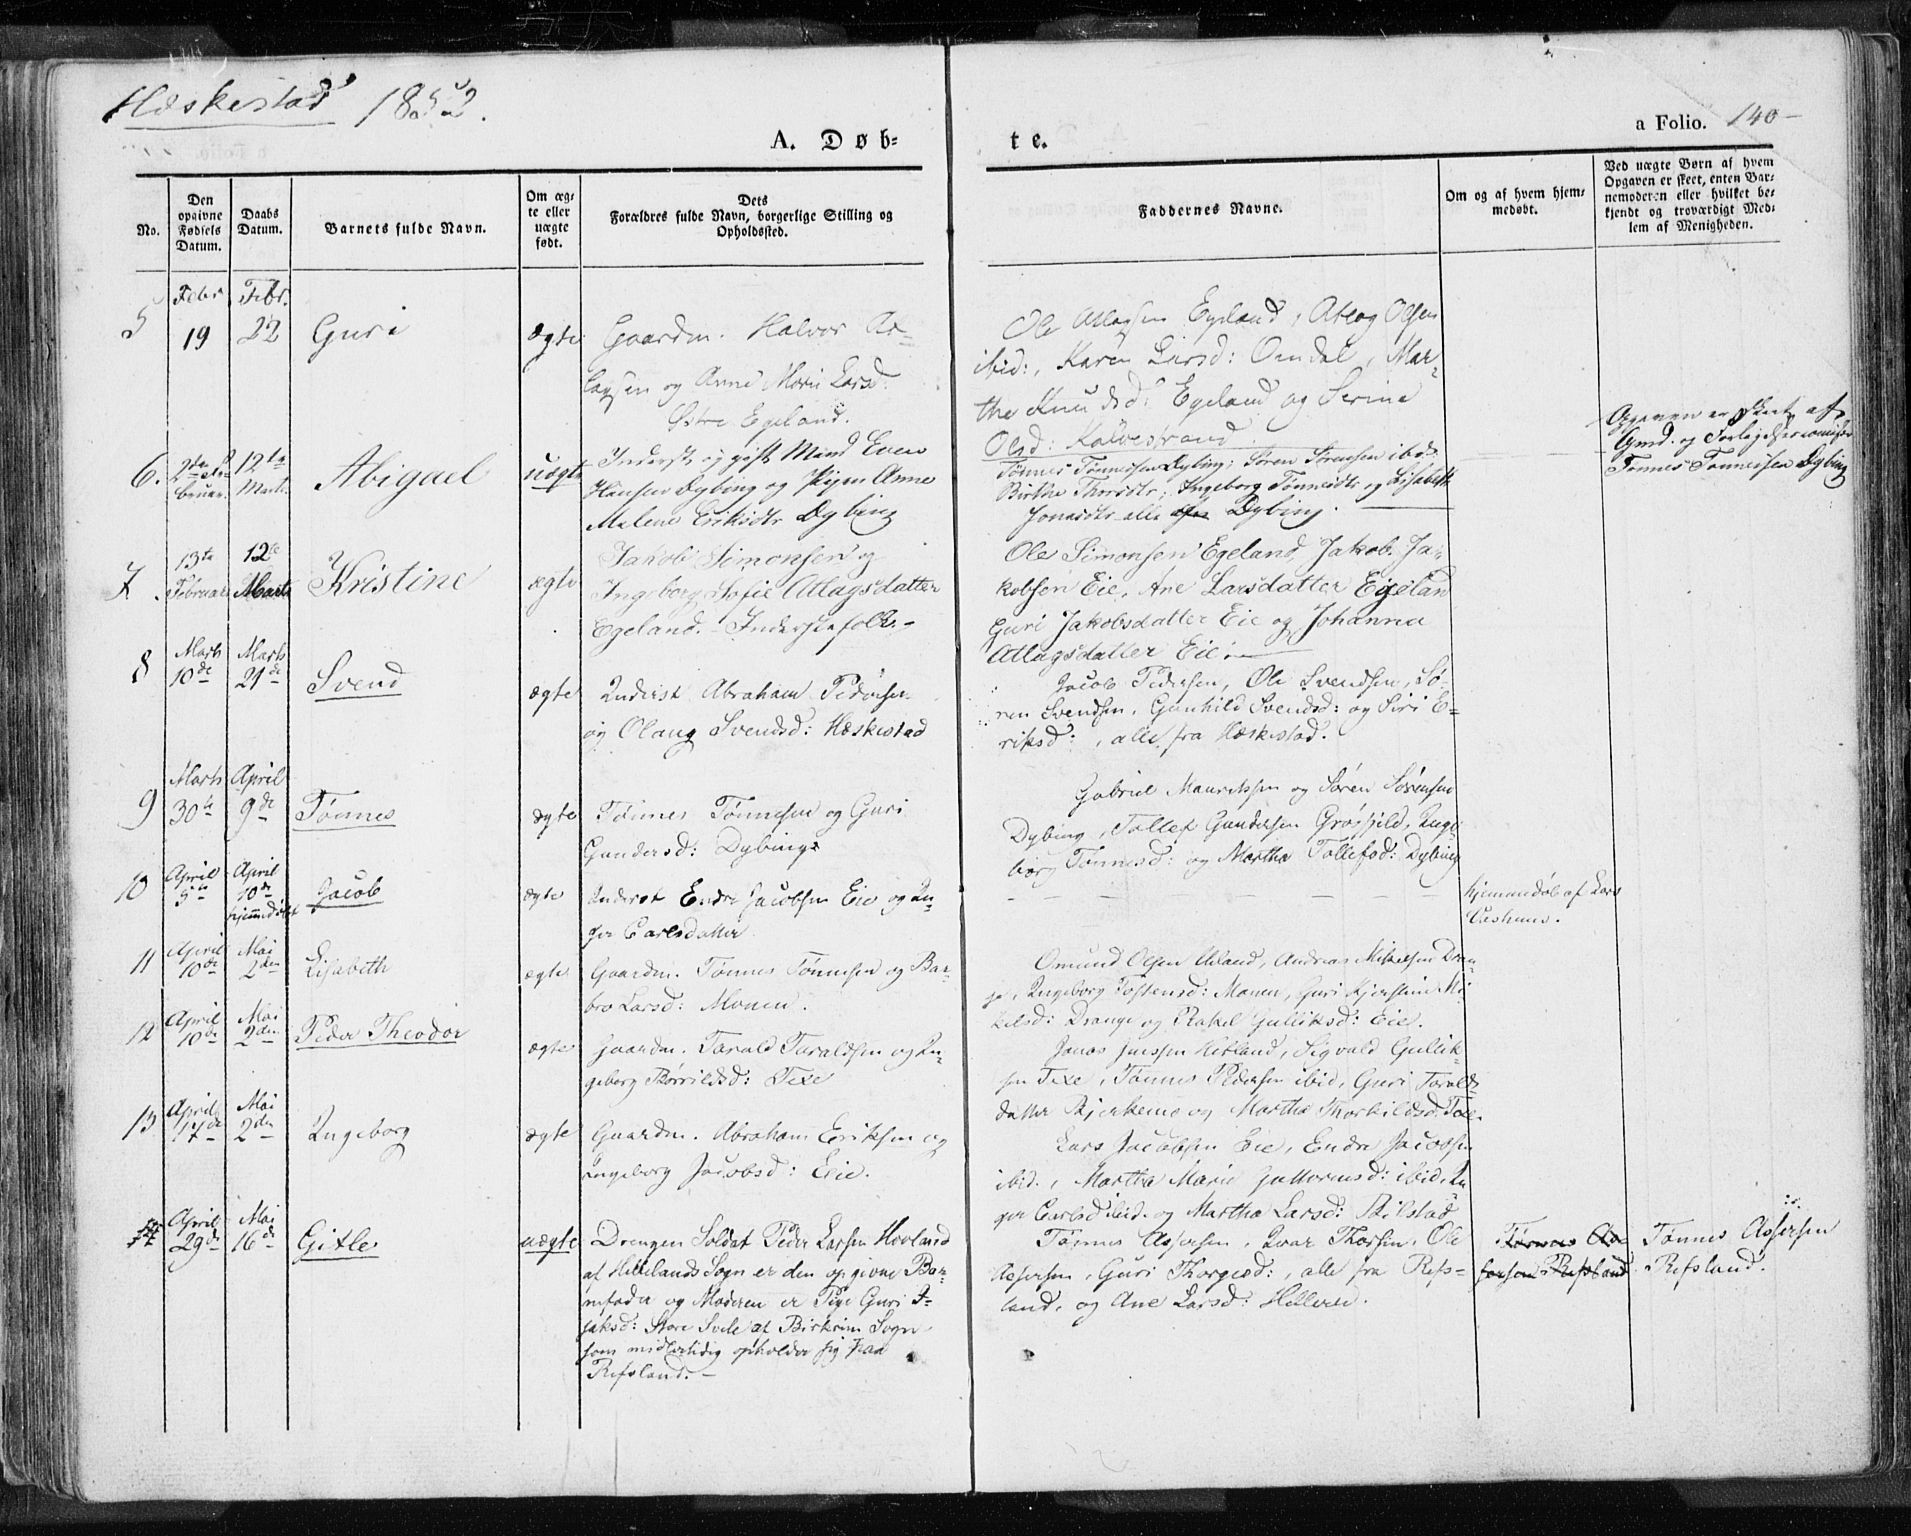 Hæskestad 1852.
a Folio. 140-
A. Døb-
te.
No.
Den opgivne Fødsels Datum.
Daabs Datum.
Barnets fulde Navn.
Om ægte eller uægte født.
Dets Forældres fulde Navn, borgerlige Stilling og Opholdssted.
Faddernes Navne.
Om og af hvem hjemmedøbt.
Ved uægte Børn af hvem
Opgaven er skeet, enten Bar-
nemoderen eller hvilket be-
kjendt og troværdigt Med-
lem af Menigheden.
Febr Febr.
5 19 22 Guri ægte Gaardm. Halvor At-
lagsen og Anne Marie Larsd:
Østre Egeland.
Ole Atlagsen Egeland, Atlag Olsen
ibid:, Karen Larsd: Omdal, Mar-
the Knudsd: Egeland og Serine
Olsd: Kalvestrand.
6. 2den Februar. 12te Marts. Abigael uægte Inderst og gift Mand Even
Hansen Dybing og Pigen Anne
Malene Eriksdtr Dybing
Tønnes Tønnesen Dybing; Søren Sørensen ibd:
Birthe Thorsdtr; Ingeborg Tønnesdtr og Lisabeth
Jonasdtr alle Dybing.
Opgaven er skeet af
Gmd. og Forligelsescommissær
Tønnes Tønnesen Dybing
7. 13te Februar 12te Marts Kristine ægte Jakob Simonsen og
Ingeborg Sofie Atlagsdatter
Egeland. - Inderstefolk. -
Ole Simonsen Egeland, Jakob Ja-
kobsen Eie, Ane Larsdatter Egeland
Guri Jakobsdatter Eie og Johanna
Atlagsdatter Eie. -
8 Marts 10de Marts 21de Svend ægte Inderst Abraham Pedersen
og Olaug Svendsd: Hæskestad
Jacob Pedersen, Ole Svendsen, Sø-
ren Svendsen, Gunhild Svendsd: og Siri E-
riksd:, alle fra Hæskestad.
9 Marts 30te April 9de Tønnes ægte Tønnes Tønnesen og Guri
Gundersd: Dybing
Gabriel Mauritssen og Søren Sørensen
Dybing, Tollef Gundersen Grøsfjeld, Inge-
borg Tønnesd: og Martha Tollefsd: Dybing
10 April 5te April 10de hjemmedøbt Jacob ægte Inderst Endre Jacobsen Eie og In-
ger Carlsdatter
- - - - - - - -
hjemmedøbt af Lars
11 April 10de Mai 2den Lisabeth ægte Gaardm. Tønnes Tønnesen og Bar-
bro Larsd: Monen.
Omund Olsen Aaland, Andreas Mikelsen Dran-
ge, Ingeborg Tostensd: Monen, Guri Kjerstine Mi-
kelsd: Drange og Rakel Gulliksd: Eie.
12 April 10de Mai 2den Peder Theodor ægte Gaardm. Tarald Taraldsen og In-
geborg Thorrildsd: Texe
Jonas Jenssen Hetland, Sigvald Gullik-
sen Texe, Tønnes Pedersen ibid, Guri Taralds-
datter Bjerkemo og Martha Thorkildsd: Texe.
13 April 17de Mai 2den Ingeborg ægte Gaardm. Abraham Eriksen og
Ingeborg Jacobsd: Eie.
Lars Jacobsen Eie, Endre Jacobsen
ibid., Martha Marie Guttormsd: ibid, In-
ger Carlsd ibid. og Martha Larsd: Bilstad
14 April 29de Mai 16de Gitle uægte Drengen Soldat Peder Larsen Hovland
af Hellelands Sogn er den opgivne Bar-
nefader og Moderen er Pige Guri I-
saksd: Store Svele af Birkrem Sogn
som midlertidig opholder sig paa
Refsland. -
Tønnes Assersen, Ivar Thorsen, Ole
Assersen, Guri Thorgesd:, alle fra Refs-
land, og Ane Larsd: Helleren.
Tønnes As-
sersen Refsland.
Tønnes Assersen
Refsland.